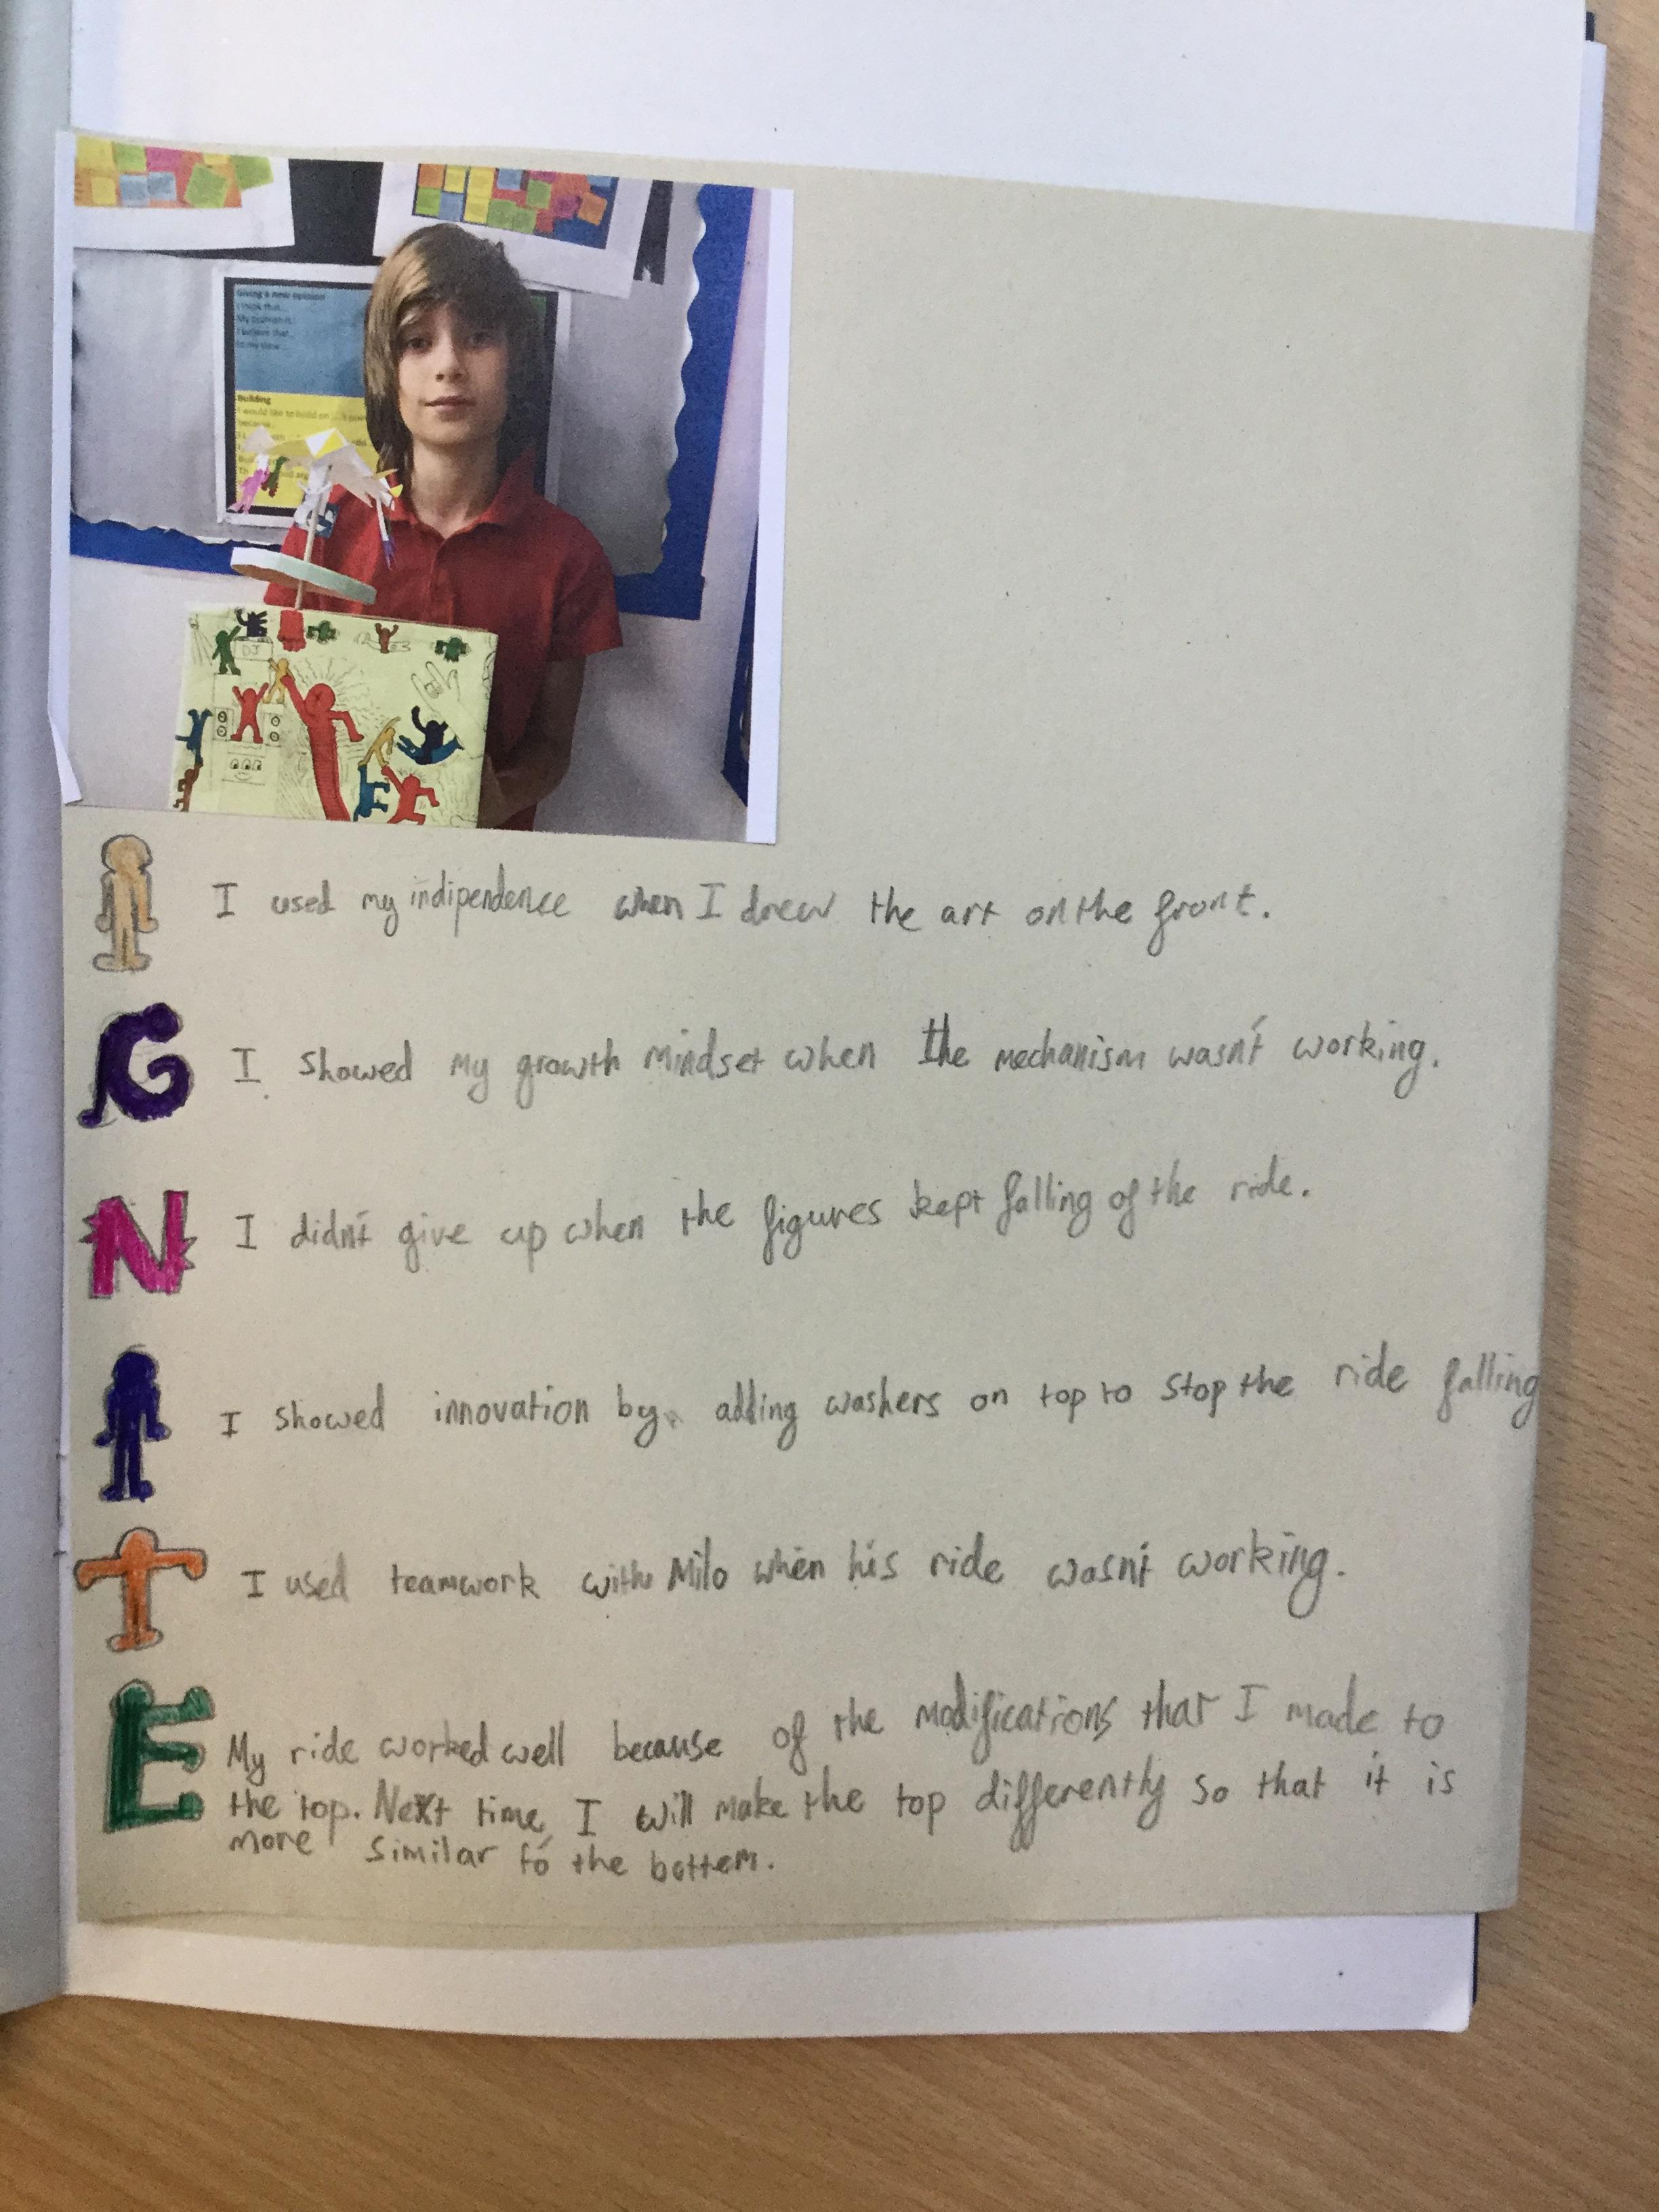 Giving a new opinion
I think that...
My opinion is
I believe that...
In my view...
Building
I would like to build on
because
DJ
I I used my indipendence when I drew the art on the front.
G I showed my growth mindset when the mechanism wasn't working.
N I didn't give up when the figures kept falling of the ride.
I I showed innovation by adding washers on top to stop the ride falling
T I used teamwork with Milo when his ride wasn't working.
E My ride worked well because of the modifications that I made to
the top. Next time, I will make the top differently so that it is
more similar to the bottem.